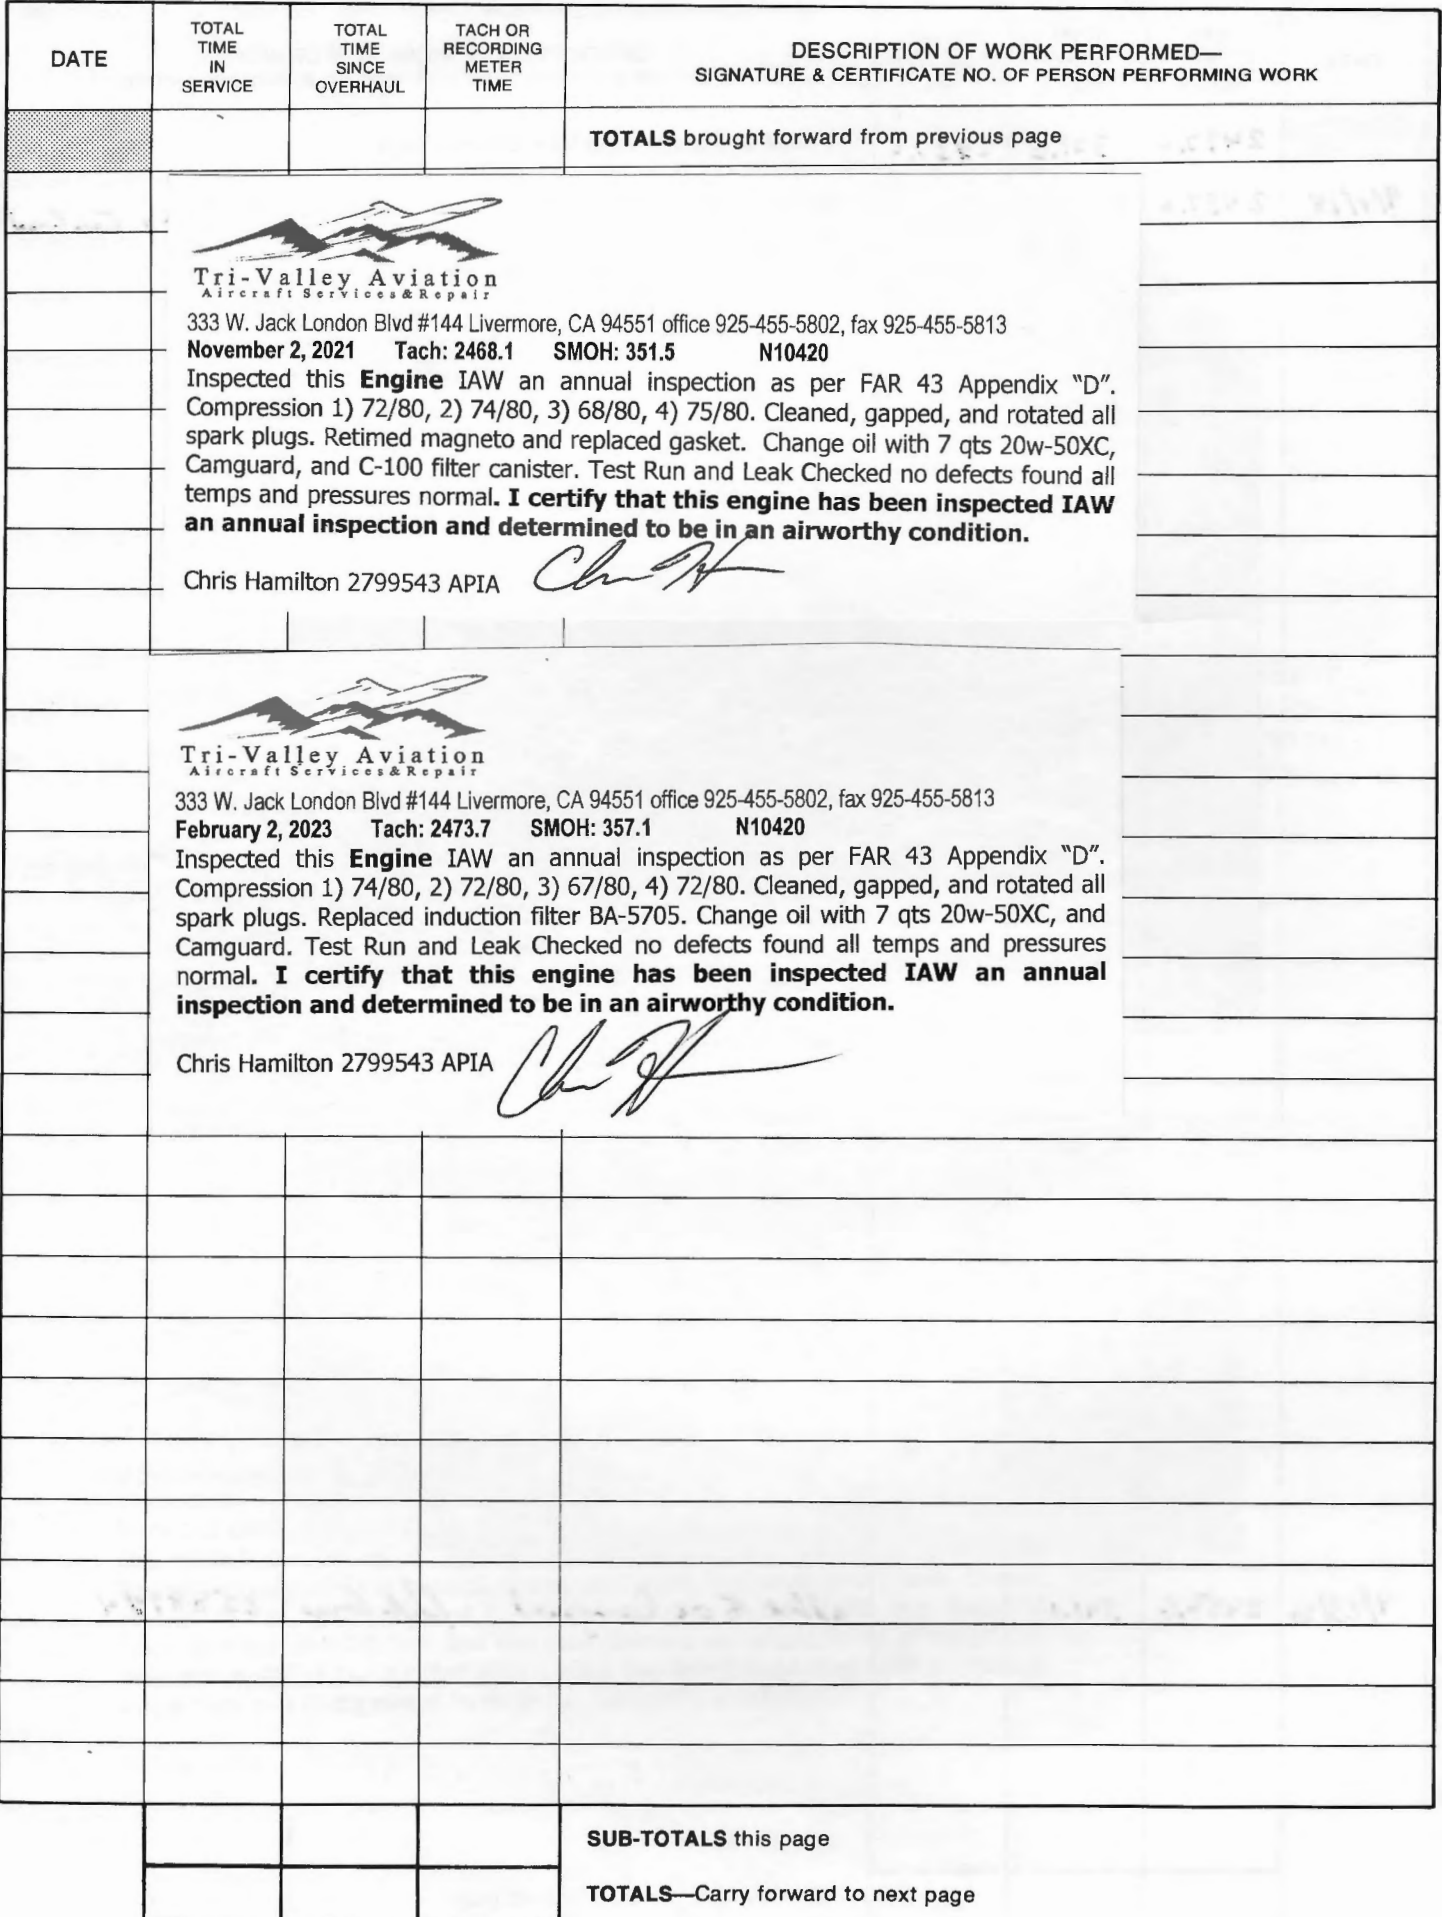 DATE
TOTAL TIME IN SERVICE
TOTAL TIME SINCE OVERHAUL
TACH OR RECORDING METER TIME
DESCRIPTION OF WORK PERFORMED—
SIGNATURE & CERTIFICATE NO. OF PERSON PERFORMING WORK
TOTALS brought forward from previous page
Tri-Valley Aviation
Aircraft Services & Repair
333 W. Jack London Blvd #144 Livermore, CA 94551 office 925-455-5802, fax 925-455-5813
November 2, 2021 Tach: 2468.1 SMOH: 351.5 N10420
Inspected this Engine IAW an annual inspection as per FAR 43 Appendix “D”.
Compression 1) 72/80, 2) 74/80, 3) 68/80, 4) 75/80. Cleaned, gapped, and rotated all
spark plugs. Retimed magneto and replaced gasket. Change oil with 7 qts 20w-50XC,
Camguard, and C-100 filter canister. Test Run and Leak Checked no defects found all
temps and pressures normal. I certify that this engine has been inspected IAW
an annual inspection and determined to be in an airworthy condition.
Chris Hamilton 2799543 APIA
Tri-Valley Aviation
Aircraft Services & Repair
333 W. Jack London Blvd #144 Livermore, CA 94551 office 925-455-5802, fax 925-455-5813
February 2, 2023 Tach: 2473.7 SMOH: 357.1 N10420
Inspected this Engine IAW an annual inspection as per FAR 43 Appendix “D”.
Compression 1) 74/80, 2) 72/80, 3) 67/80, 4) 72/80. Cleaned, gapped, and rotated all
spark plugs. Replaced induction filter BA-5705. Change oil with 7 qts 20w-50XC, and
Camguard. Test Run and Leak Checked no defects found all temps and pressures
normal. I certify that this engine has been inspected IAW an annual
inspection and determined to be in an airworthy condition.
Chris Hamilton 2799543 APIA
SUB-TOTALS this page
TOTALS—Carry forward to next page